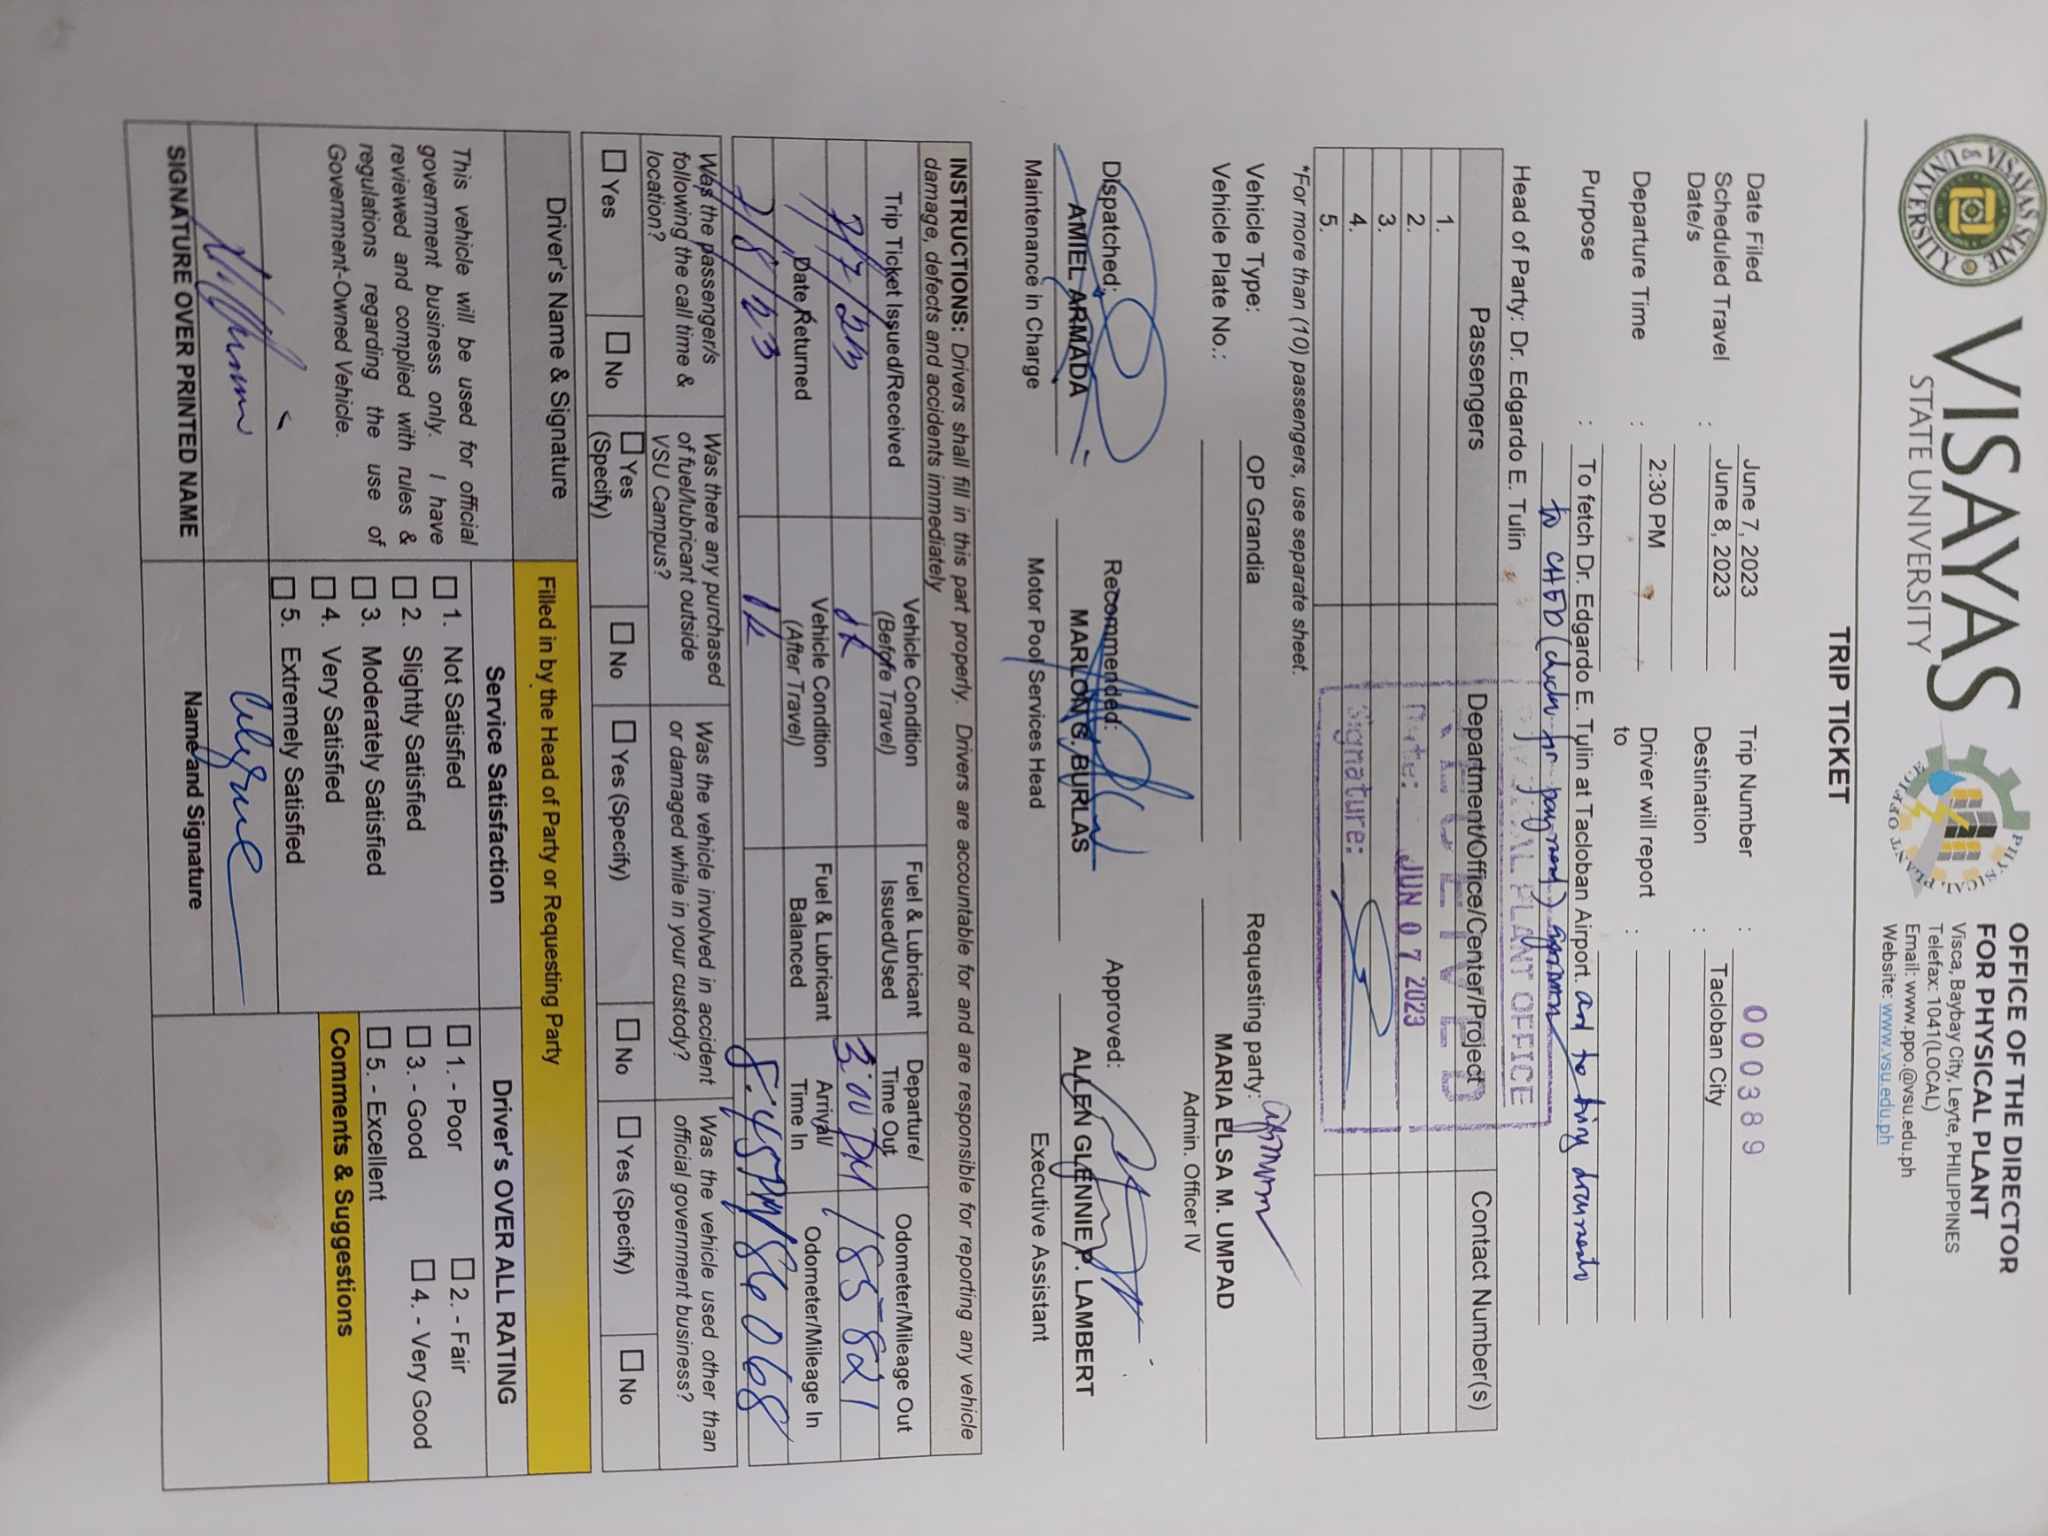 VISAYAS
STATE UNIVERSITY
VISAYAS STATE UNIVERSITY
PHYSICAL PLANT OFFICE
OFFICE OF THE DIRECTOR
FOR PHYSICAL PLANT
Visca, Baybay City, Leyte, PHILIPPINES
Telefax: 1041(LOCAL)
Email: www.ppo.@vsu.edu.ph
Website: www.vsu.edu.ph
TRIP TICKET
Date Filed : June 7, 2023 Trip Number : 000389
Scheduled Travel Date/s : June 8, 2023 Destination : Tacloban City
Departure Time : 2:30 PM Driver will report to :
Purpose : To fetch Dr. Edgardo E. Tulin at Tacloban Airport. and to bring documents
to CHED
Head of Party: Dr. Edgardo E. Tulin
Passengers Department/Office/Center/Project Contact Number(s)
1.
2.
3.
4.
5.
PHYSICAL PLANT OFFICE
Date: JUN 07 2023
Signature:
*For more than (10) passengers, use separate sheet.
Vehicle Type: OP Grandia Requesting party:
Vehicle Plate No.: MARIA ELSA M. UMPAD
Admin. Officer IV
Dispatched: Recommended: Approved:
AMIEL ARMADA MARLON G. BURLAS ALLEN GLENNIE P. LAMBERT
Maintenance in Charge Motor Pool Services Head Executive Assistant
INSTRUCTIONS: Drivers shall fill in this part properly. Drivers are accountable for and are responsible for reporting any vehicle
damage, defects and accidents immediately
Trip Ticket Issued/Received Vehicle Condition (Before Travel) Fuel & Lubricant Issued/Used Departure/ Time Out Odometer/Mileage Out
ok 3:00 PM 185821
Date Returned Vehicle Condition (After Travel) Fuel & Lubricant Balanced Arrival/ Time In Odometer/Mileage In
/8/23 ok 8:45PM 186068
Was the passenger/s following the call time & location? Was there any purchased of fuel/lubricant outside VSU Campus? Was the vehicle involved in accident or damaged while in your custody? Was the vehicle used other than official government business?
Yes No Yes (Specify) No Yes (Specify) No Yes (Specify) No
Driver's Name & Signature Filled in by the Head of Party or Requesting Party
Service Satisfaction Driver's OVER ALL RATING
This vehicle will be used for official
government business only. I have
reviewed and complied with rules &
regulations regarding the use of
Government-Owned Vehicle.
1. Not Satisfied
2. Slightly Satisfied
3. Moderately Satisfied
4. Very Satisfied
5. Extremely Satisfied
1. - Poor 2. - Fair
3. - Good 4. - Very Good
5. - Excellent
Comments & Suggestions
SIGNATURE OVER PRINTED NAME Name and Signature